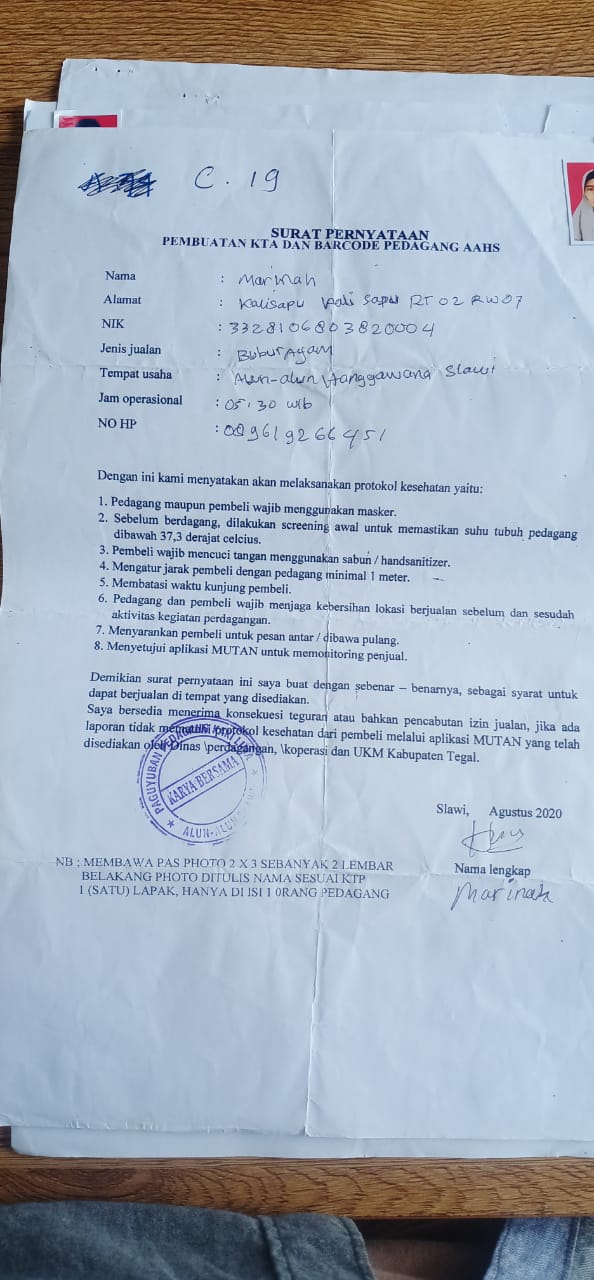 C. 19
SURAT PERNYATAAN
PEMBUATAN KTA DAN BARCODE PEDAGANG AAHS
Nama : Marinah
Alamat : Kalisapu Kali Sapu RT 02 RW 07
NIK : 3328106803820004
Jenis jualan : Bubur Ayam
Tempat usaha : Alun-alun Hanggawana Slawi
Jam operasional : 05.30 wib
NO HP :
Dengan ini kami menyatakan akan melaksanakan protokol kesehatan yaitu:
1. Pedagang maupun pembeli wajib menggunakan masker.
2. Sebelum berdagang, dilakukan screening awal untuk memastikan suhu tubuh pedagang
dibawah 37,3 derajat celcius.
3. Pembeli wajib mencuci tangan menggunakan sabun / handsanitizer.
4. Mengatur jarak pembeli dengan pedagang minimal 1 meter.
5. Membatasi waktu kunjung pembeli.
6. Pedagang dan pembeli wajib menjaga kebersihan lokasi berjualan sebelum dan sesudah
aktivitas kegiatan perdagangan.
7. Menyarankan pembeli untuk pesan antar / dibawa pulang.
8. Menyetujui aplikasi MUTAN untuk memonitoring penjual.
Demikian surat pernyataan ini saya buat dengan sebenar – benarnya, sebagai syarat untuk
dapat berjualan di tempat yang disediakan.
Saya bersedia menerima konsekuesi teguran atau bahkan pencabutan izin jualan, jika ada
laporan tidak mematuhi protokol kesehatan dari pembeli melalui aplikasi MUTAN yang telah
disediakan oleh Dinas \perdagangan, \koperasi dan UKM Kabupaten Tegal.
PAGUYUBAN PEDAGANG KAKI LIMA
KARYA BERSAMA
ALUN-ALUN
Slawi, Agustus 2020
Nama lengkap
Marinah
NB : MEMBAWA PAS PHOTO 2 X 3 SEBANYAK 2 LEMBAR
BELAKANG PHOTO DITULIS NAMA SESUAI KTP
1 (SATU) LAPAK, HANYA DI ISI 1 0RANG PEDAGANG